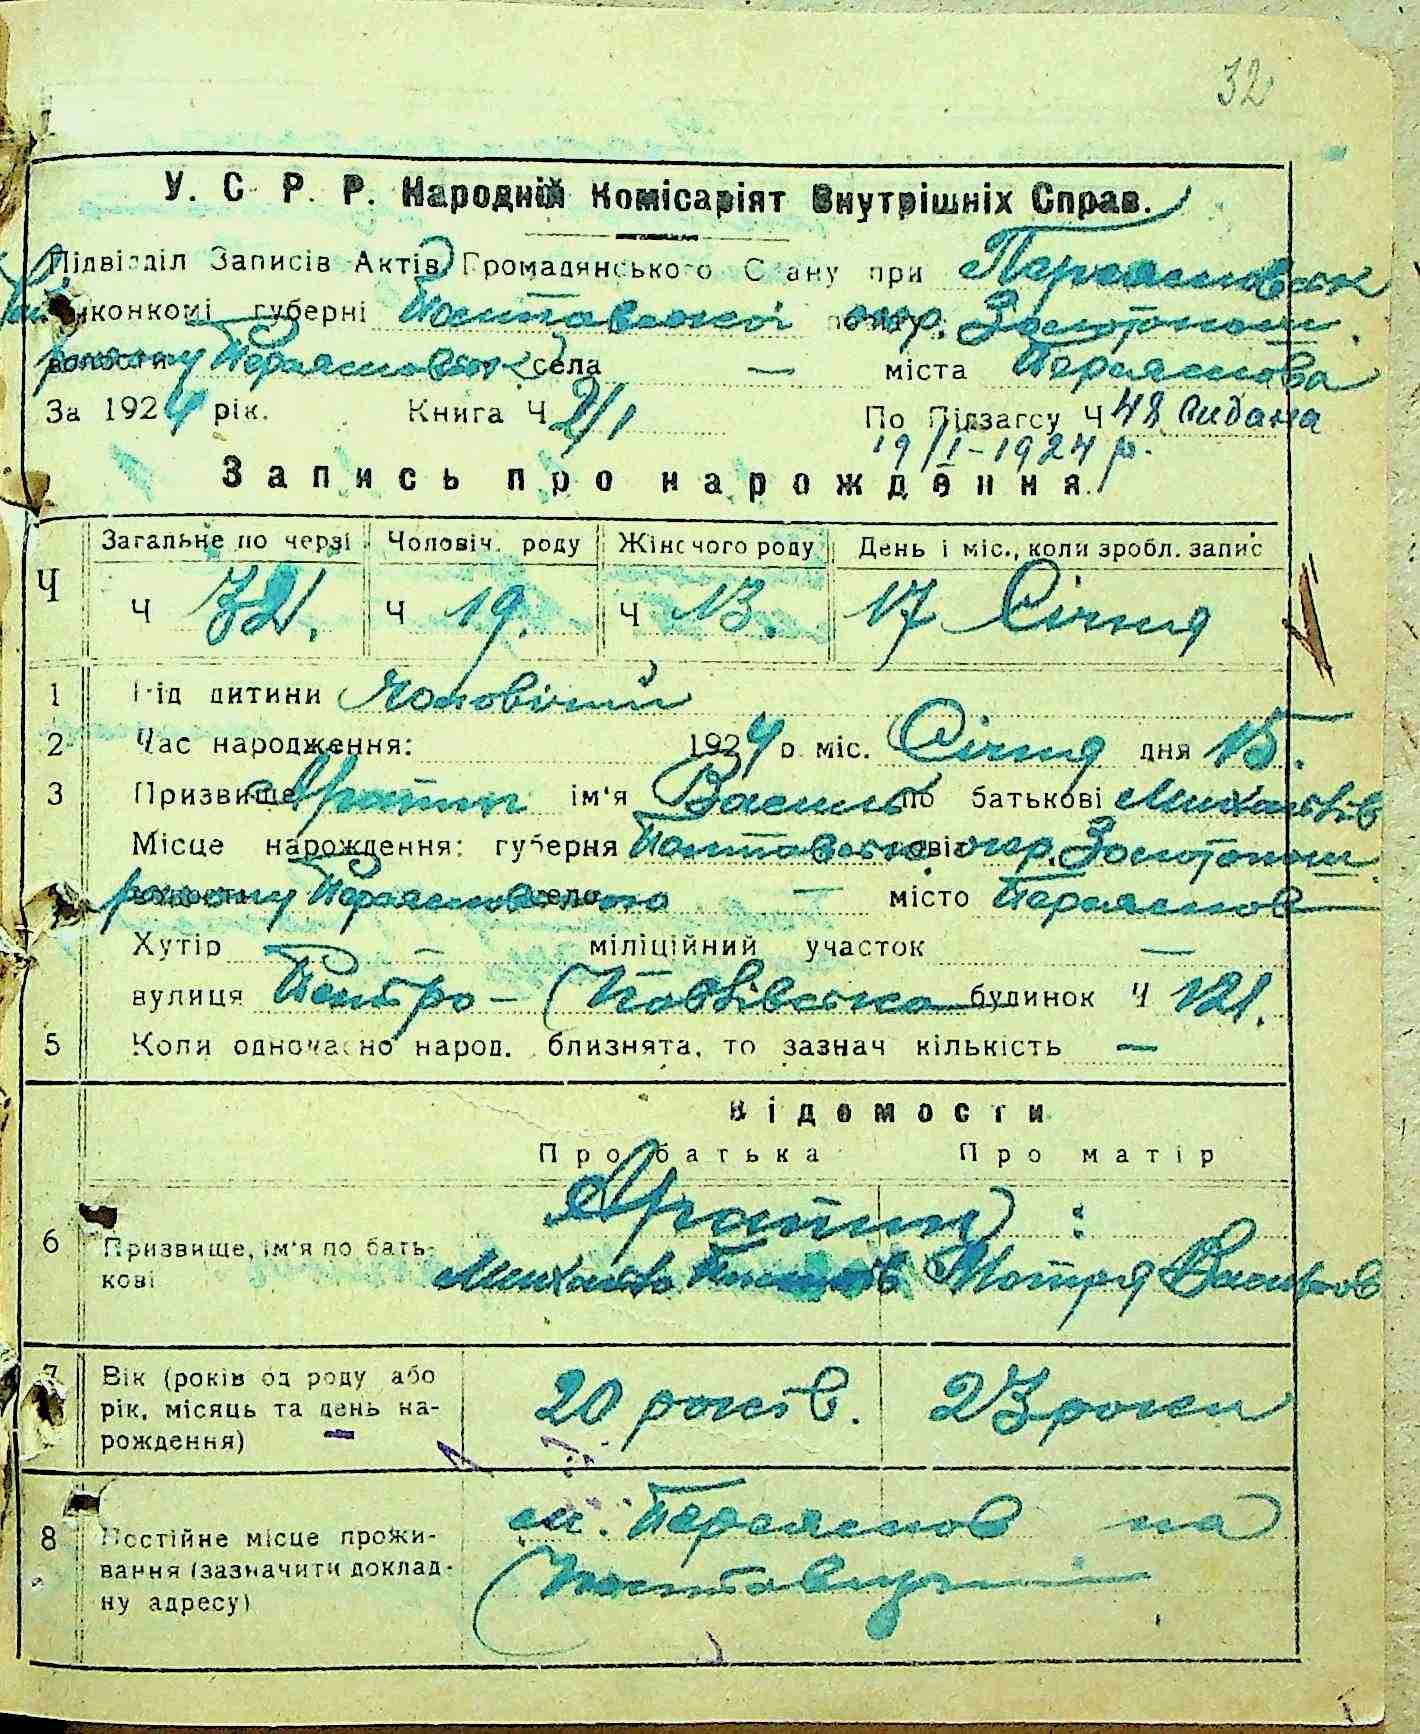 32
У. С. Р. Р. Народній Комісаріят Внутрішніх Справ.
Підвідділ Записів Актів Громадянського Стану при Переяславськ
виконкомі губерні Полтавської повіту окр. Золотонош.
волости району Переяславськ села — міста Переяслова
За 1924 рік. Книга Ч 2/1 По Підзагсу Ч 48 видана
19/I-1924 р.
Запись про нарождення.
Ч Загальне по черзі Чоловіч. роду Жіночого роду День і міс., коли зробл. запис
Ч 32. Ч 19. Ч 13. 17 Січня
1 Рід дитини Чоловічий
2 Час народження: 1924 р. міс. Січня дня 15.
3 Призвище ім'я Василь по батькові Михайлів
Місце нарождення: губерня Полтавська окр. Золотонош.
району Переяславського село — місто Переяслов
Хутір — міліційний участок —
вулиця Петро- будинок Ч 121.
5 Коли одночасно народ. близнята, то зазнач кількість —
Відомости
Про батька Про матір
6 Призвище, ім'я по бать-
кові Михайло Мотря
7 Вік (років од роду або
рік, місяць та день на-
рождення) 20 років. 23 роки
8 Постійне місце прожи-
вання (зазначити доклад-
ну адресу) м. Переяслов на
Полтавщині